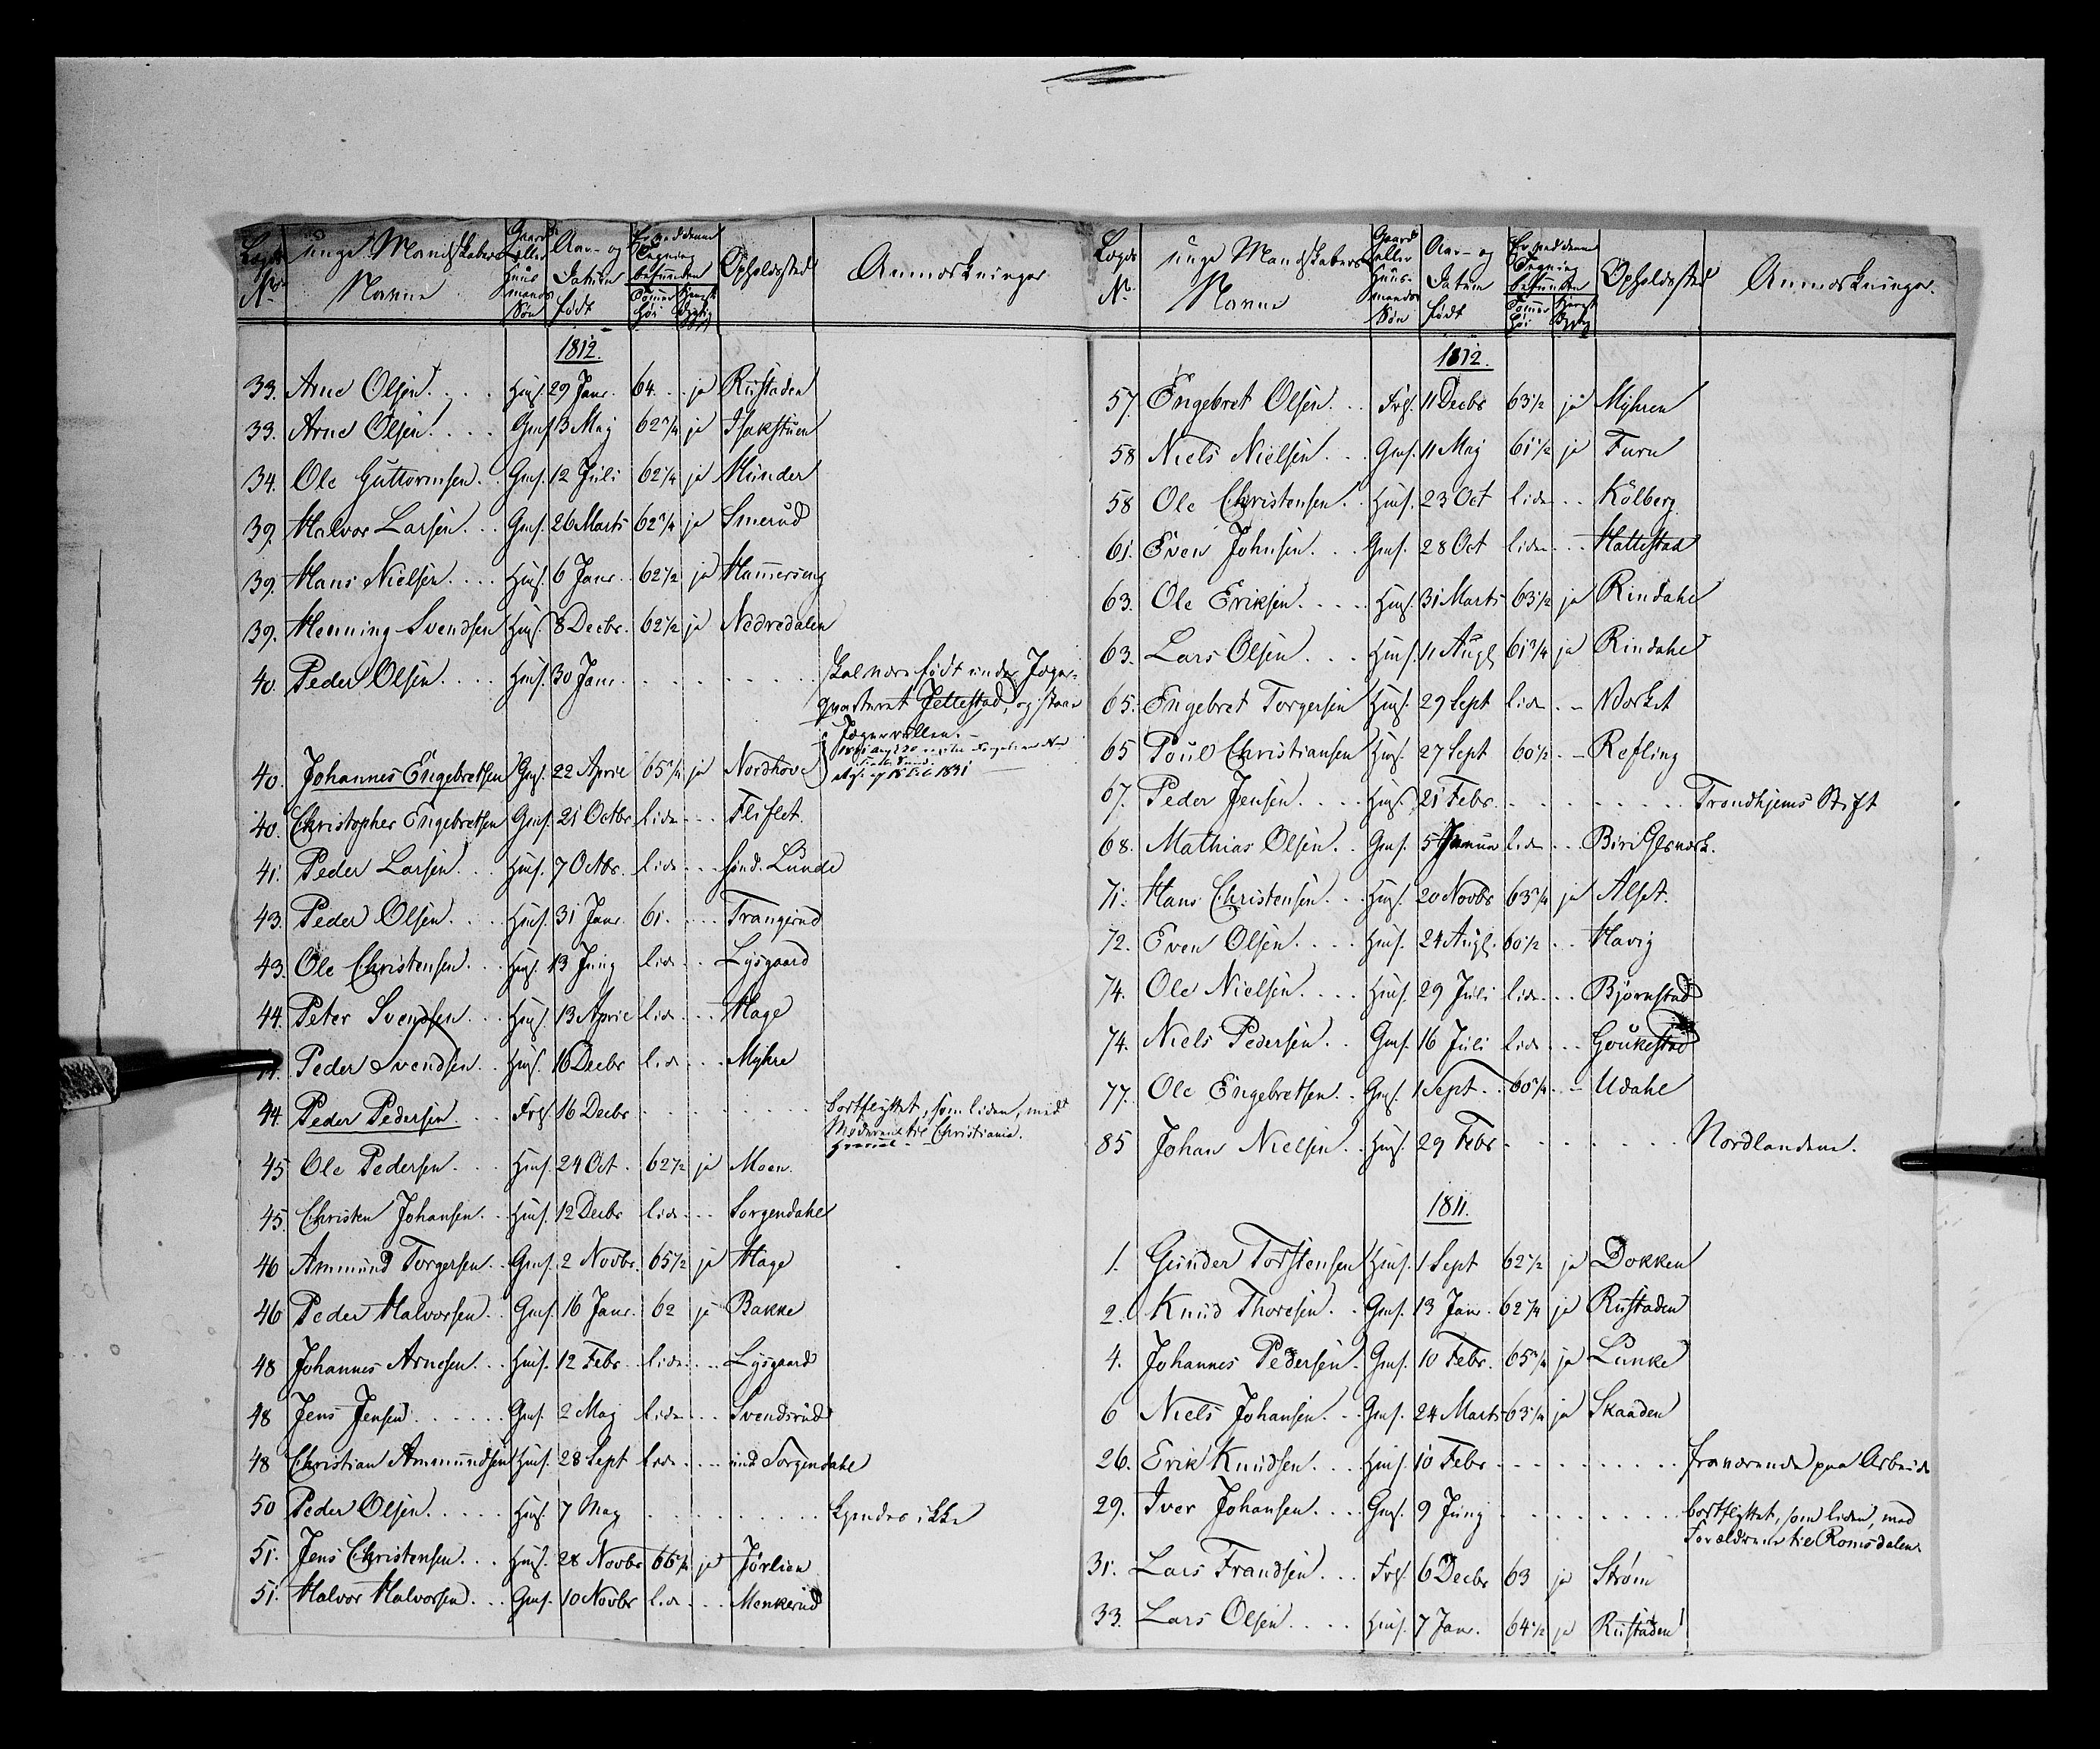 Lægds No unge Mandskabers Navne Gaard eller Huusmands Søn Aar- og Datum født Er ved denne Tegning befunden Tommer høi Opholdssted Anmærkninger
1812.
33. Arne Olsen Hms. 29 Janr. 64 ja Rustaden
33. Arne Olsen Gms. 3 Maj 62 1/4 ja Isakstuen
34. Ole Guttormsen Gms. 12 Juli 62 1/4 ja Hunder
39. Halvor Larsen Gms. 26 Marts 62 3/4 ja Smerud
39. Hans Nielsen Hms. 6 Janr. 62 1/2 ja Hammerseng
39. Henning Svendsen Hms. 8 Decbr. 62 1/2 ja Nedredalen
40. Peder Olsen Hms. 30 Janr. skal være født under Jæger-
qvarteret Jellestad, og staae
i Jægerrullen.
40. Johannes Engebretsen Gms. 22 April 65 3/4 ja Nordhove
40. Christopher Engebretsen Gms. 21 Octbr liden Fliflet.
41. Peder Larsen Hms. 7 Octbr. liden sønd. Lunde
43. Peder Olsen Hms. 31 Janr. 61 Trangerud
43. Ole Christensen Hms. 13 Juny liden Lysgaard
44. Peter Svendsen Hms. 13 April liden Hage
44. Peder Svendsen Hms. 16 Decbr liden Myhre
44. Peder Pedersen Frs. 16 Decbr bortflyttet, som liden, med
Moderen til Christiania.
45 Ole Pedersen Hms. 24 Oct. 62 1/2 ja Moen.
45. Christen Johansen Hms. 12 Decbr liden Sorgendahl
46 Ammund Torgersen Gms. 2 Novbr. 65 1/2 ja Hage
46 Peder Halvorsen Gms. 16 Janr. 62 ja Bakke
48 Johannes Arnesen Hms. 12 Febr. liden Lysgaard
48 Jens Jensen Gms. 2 Maj liden Svendsrud
48 Christian Ammundsen Hms. 28 Sept liden und Sorgendahl
50 Peder Olsen Hms. 7 May kjendes ikke
51. Jens Christensen Hms. 28 Novbr 66 1/4 ja Jørlien
51. Halvor Halvorsen Gms. 10 Novbr liden Menkerud
Lægds No unge Mandskabers Navne Gaard eller Huusmands Søn Aar- og Datum født Er ved denne Tegning befunden Tommer høi Opholdssted Anmærkninger.
1812.
57 Engebret Olsen Frs. 11 Decbr 63 1/2 ja Myhren
58 Niels Nielsen Gms. 11 Maj 61 1/2 ja Furu
58 Ole Christensen Hms. 23 Oct liden Kolberg
61. Even Johnsen Gms. 28 Oct liden Hallestad
63. Ole Eriksen Hms. 31 Marts 63 1/2 ja Rindahl
63. Lars Olsen Hms. 11 Augs 61 3/4 ja Rindahl
65. Engebret Torgersen Hms. 29 Sept liden Værket
65 Poul Christiansen Hms. 27 Sept 60 1/2 Refling
67. Peder Jensen Hms. 21 Febr. Trondhjems Stift
68. Mathias Olsen Gms. 5 Januar liden Biri Glsværk.
71. Hans Christensen Hms. 20 Novbr 63 3/4 ja Alset.
72. Even Olsen Hms. 24 Augs. 60 1/2 Havig
74. Ole Nielsen Hms. 29 Juli liden Bjørnstad
74. Niels Pedersen Gms. 16 Juli liden Goukestad
77. Ole Engebretsen Gms. 1 Sept 60 3/4 Udahl
85 Johan Nielsen Hms. 29 Febr Nordlandene.
1811.
1. Gunder Torstensen Hms. 1 Sept 62 1/2 ja Dokken
2. Knud Thoresen Gms. 13 Janr. 62 1/4 ja Rustaden
4. Johannes Pedersen Gms. 10 Febr. 65 3/4 ja Lunke
6 Niels Johansen Gms. 24 Marts 63 1/4 ja Skaaden
26. Erik Knudsen Hms. 10 Febr. fraværende paa Arbeide
29. Iver Johansen Gms. 9 Juny bortflyttet, som liden, med
Forældrene til Romsdalen.
31. Lars Frandsen Frs. 6 Decbr 63 ja Strøm
33. Lars Olsen Hms. 7 Janr. 64 1/2 ja Rustaden